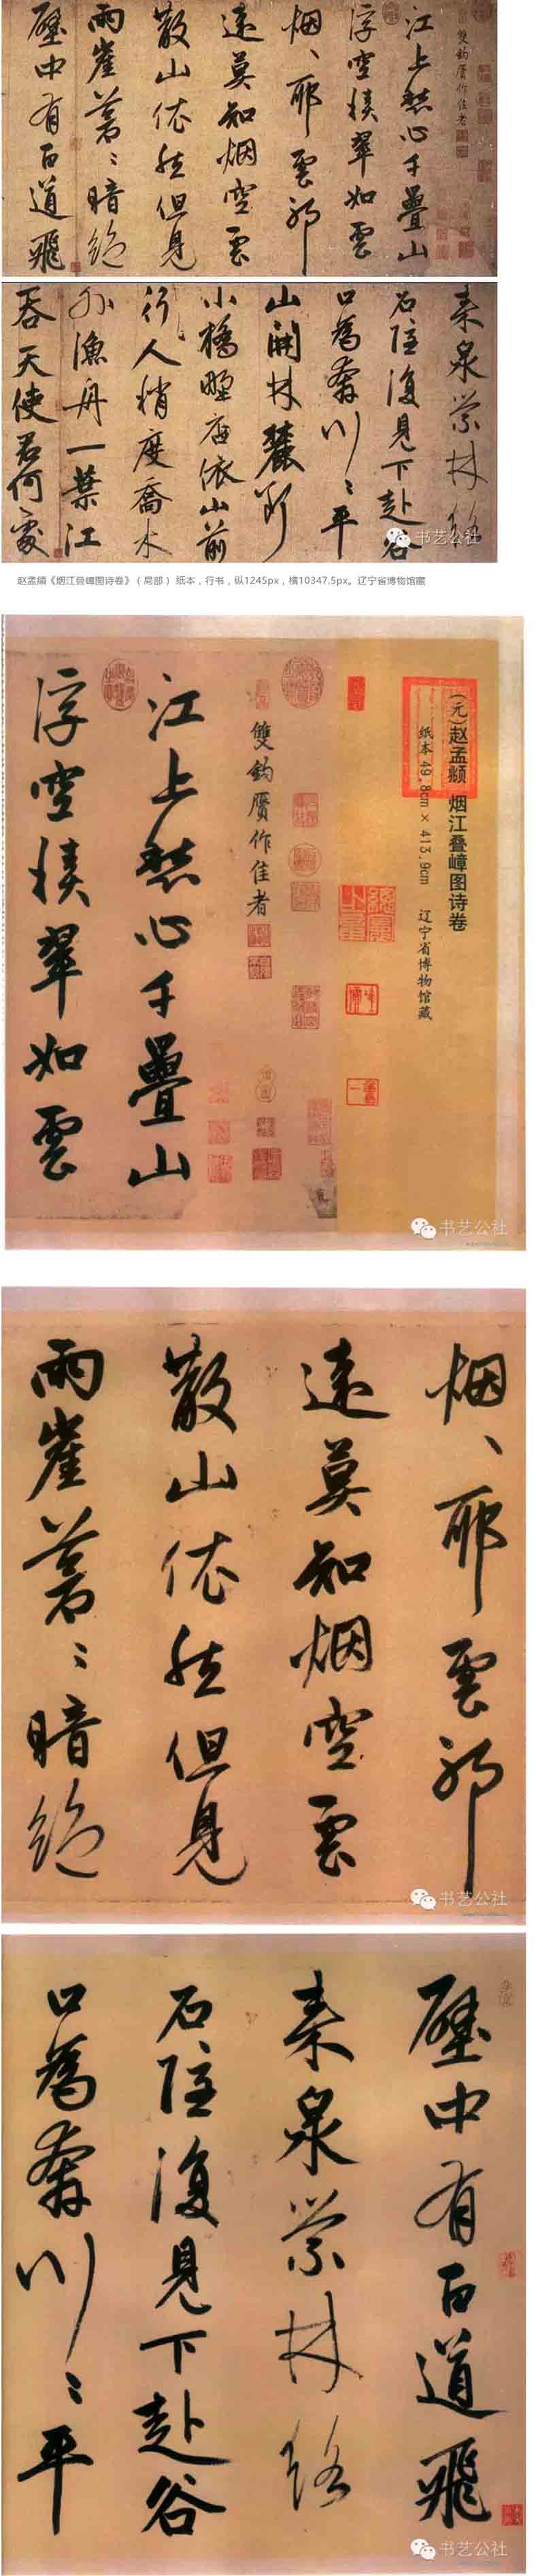 雙鈎贋作佳者
江上愁心千疊山
浮空積翠如雲
烟、耶雲耶
遠莫知烟空雲
散山依然但見
兩崖蒼〻暗絶
壁中有百道飛
来泉縈林絡
石隱復見下赴谷
口為奔川〻平
山開林麓断
小橋野店依山前
行人稍度喬木
外漁舟一葉江
吞天使君何處
书艺公社
赵孟頫《烟江叠嶂图诗卷》（局部） 纸本，行书，纵1245px，横10347.5px。辽宁省博物馆藏
(元)赵孟頫 烟江叠嶂图诗卷
纸本 49.8cm×413.9cm 辽宁省博物馆藏
雙鈎贋作佳者
江上愁心千疊山
浮空積翠如雲
书艺公社
烟、耶雲耶
遠莫知烟空雲
散山依然但見
兩崖蒼〻暗絶
书艺公社
壁中有百道飛
来泉縈林絡
石隱復見下赴谷
口為奔川〻平
书艺公社